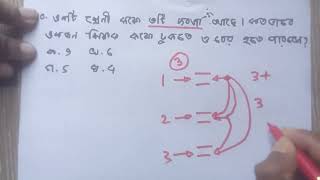 একটি শ্রেণী কক্ষে ৩টি দরজা আছে। কতভাবে
একজন শিক্ষক কক্ষে ঢুকতে ও বের হতে পারবেন?
ক. ৯ খ. ৬
গ. ৫ ঘ. ৪
3
1
3+
3
2
3